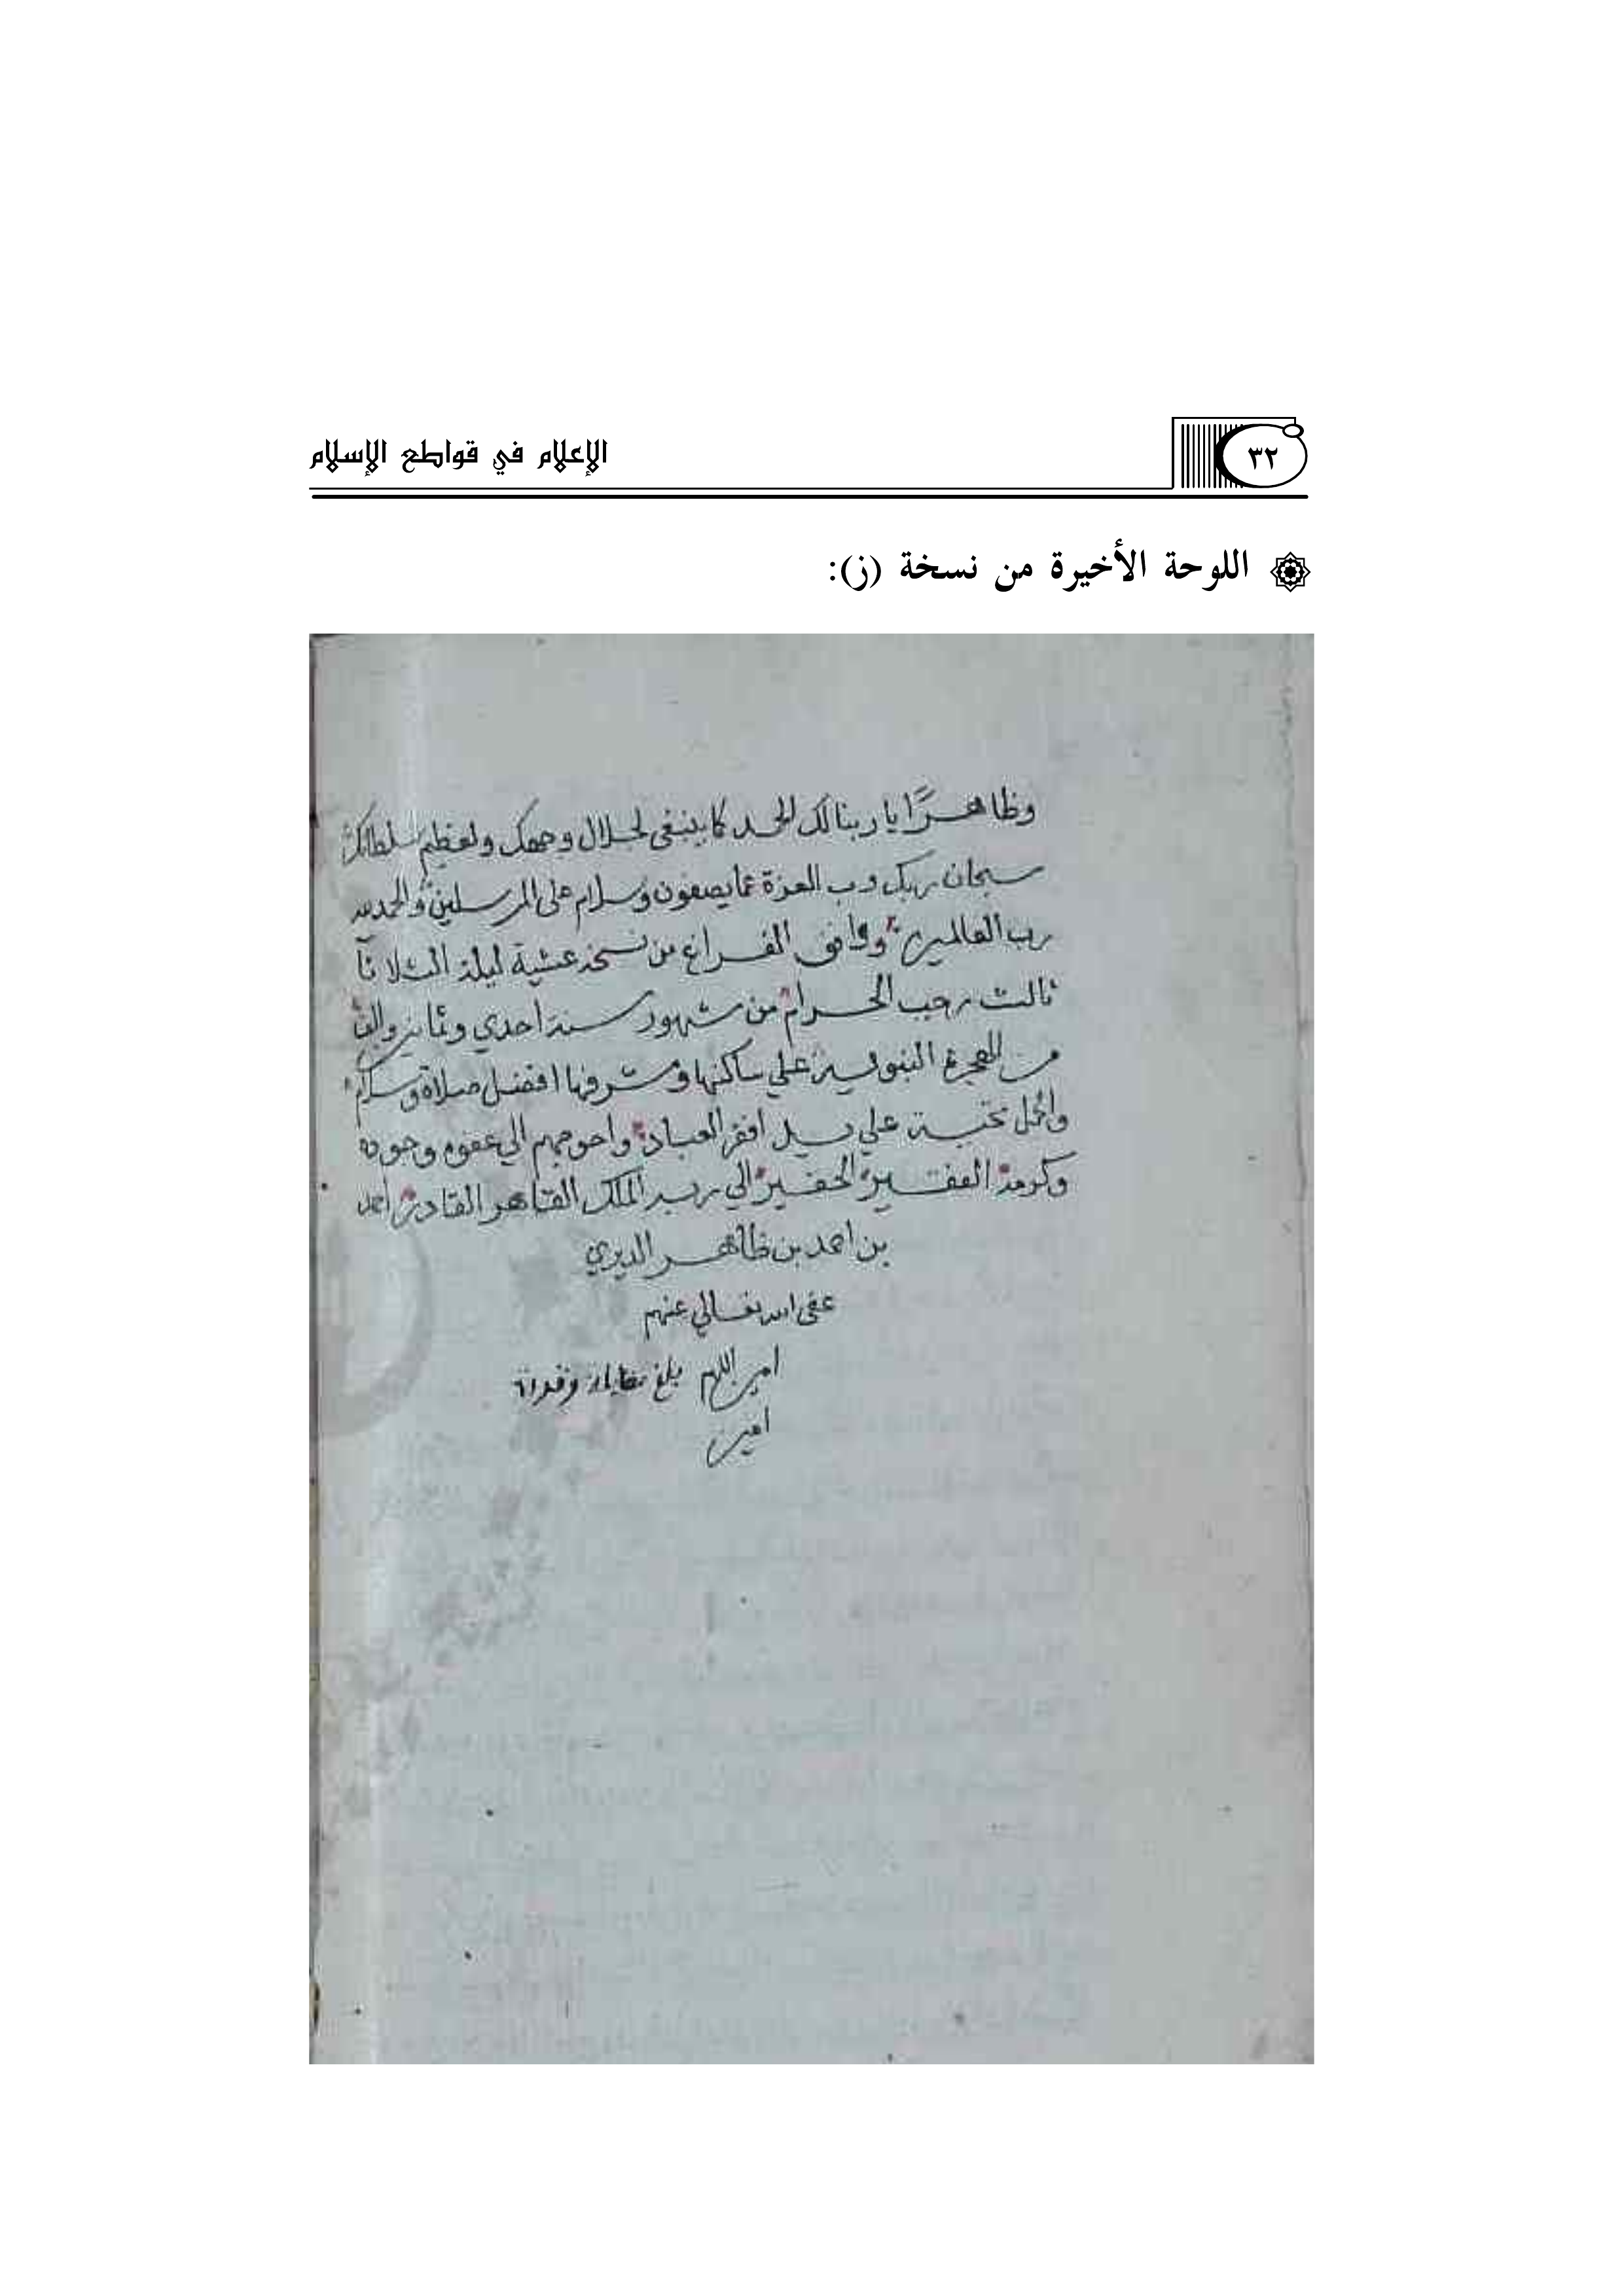 ٣٢
الإعلام في قواطع الإسلام
اللوحة الأخيرة من نسخة (ز):
وظاهرًا يا ربنا لك الحمد كما ينبغي لجلال وجهك ولعظيم سلطانك
سبحان ربك رب العزة عما يصفون وسلام على المرسلين والحمد لله
رب العالمين ووافق الفراغ من نسخه عشية ليلة الثلاثا
ثالث رجب الحرام من شهور سنة احدي وثمانين والف
من الهجرة النبوية علي ساكنها ومشرفها افضل صلاة وسلام
علي يد افقر العباد واحوجهم الي عفوه وجوده
وكرمه الفقير الحقير الي ربه الملك القاهر القادر احمد
بن احمد بن ظاهر الديري
عفى الله تعالي عنهم
امين اللهم بلغ مقابلة
امين